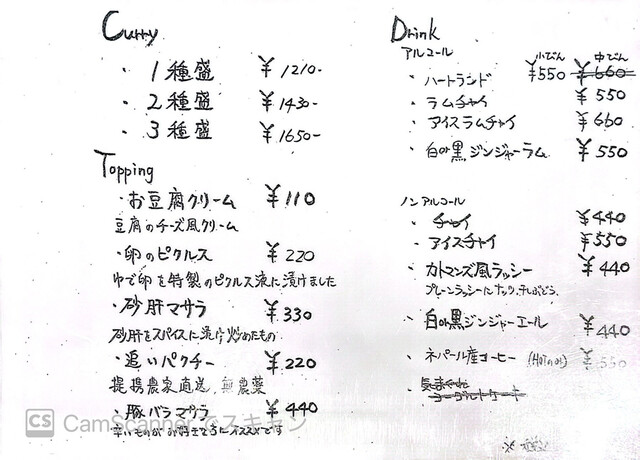 Curry
・1種盛 ¥1210-
・2種盛 ¥1430-
・3種盛 ¥1650-
Topping
・お豆腐クリーム ¥110
豆腐のチーズ風クリーム
・卵のピクルス ¥220
ゆで卵を特製のピクルス液に漬けました
・砂肝マサラ ¥330
砂肝をスパイスに漬け炒めたもの
・追いパクチー ¥220
提携農家直送、無農薬
・豚バラマサラ ¥440
辛いものがお好きな方にオススメです
Drink
アルコール
小びん 中びん
・ハートランド ¥550 ¥660
・ラムチャイ ¥550
・アイスラムチャイ ¥660
・白or黒ジンジャーラム ¥550
ノンアルコール
・チャイ ¥440
・アイスチャイ ¥550
・カトマンズ風ラッシー ¥440
プレーンラッシーにナッツ、干しぶどう
・白or黒ジンジャーエール ¥440
・ネパール産コーヒー (Hot or ¥550
・気まぐれ
ヨーグルトケーキ
※
CS CamScanner でスキャン